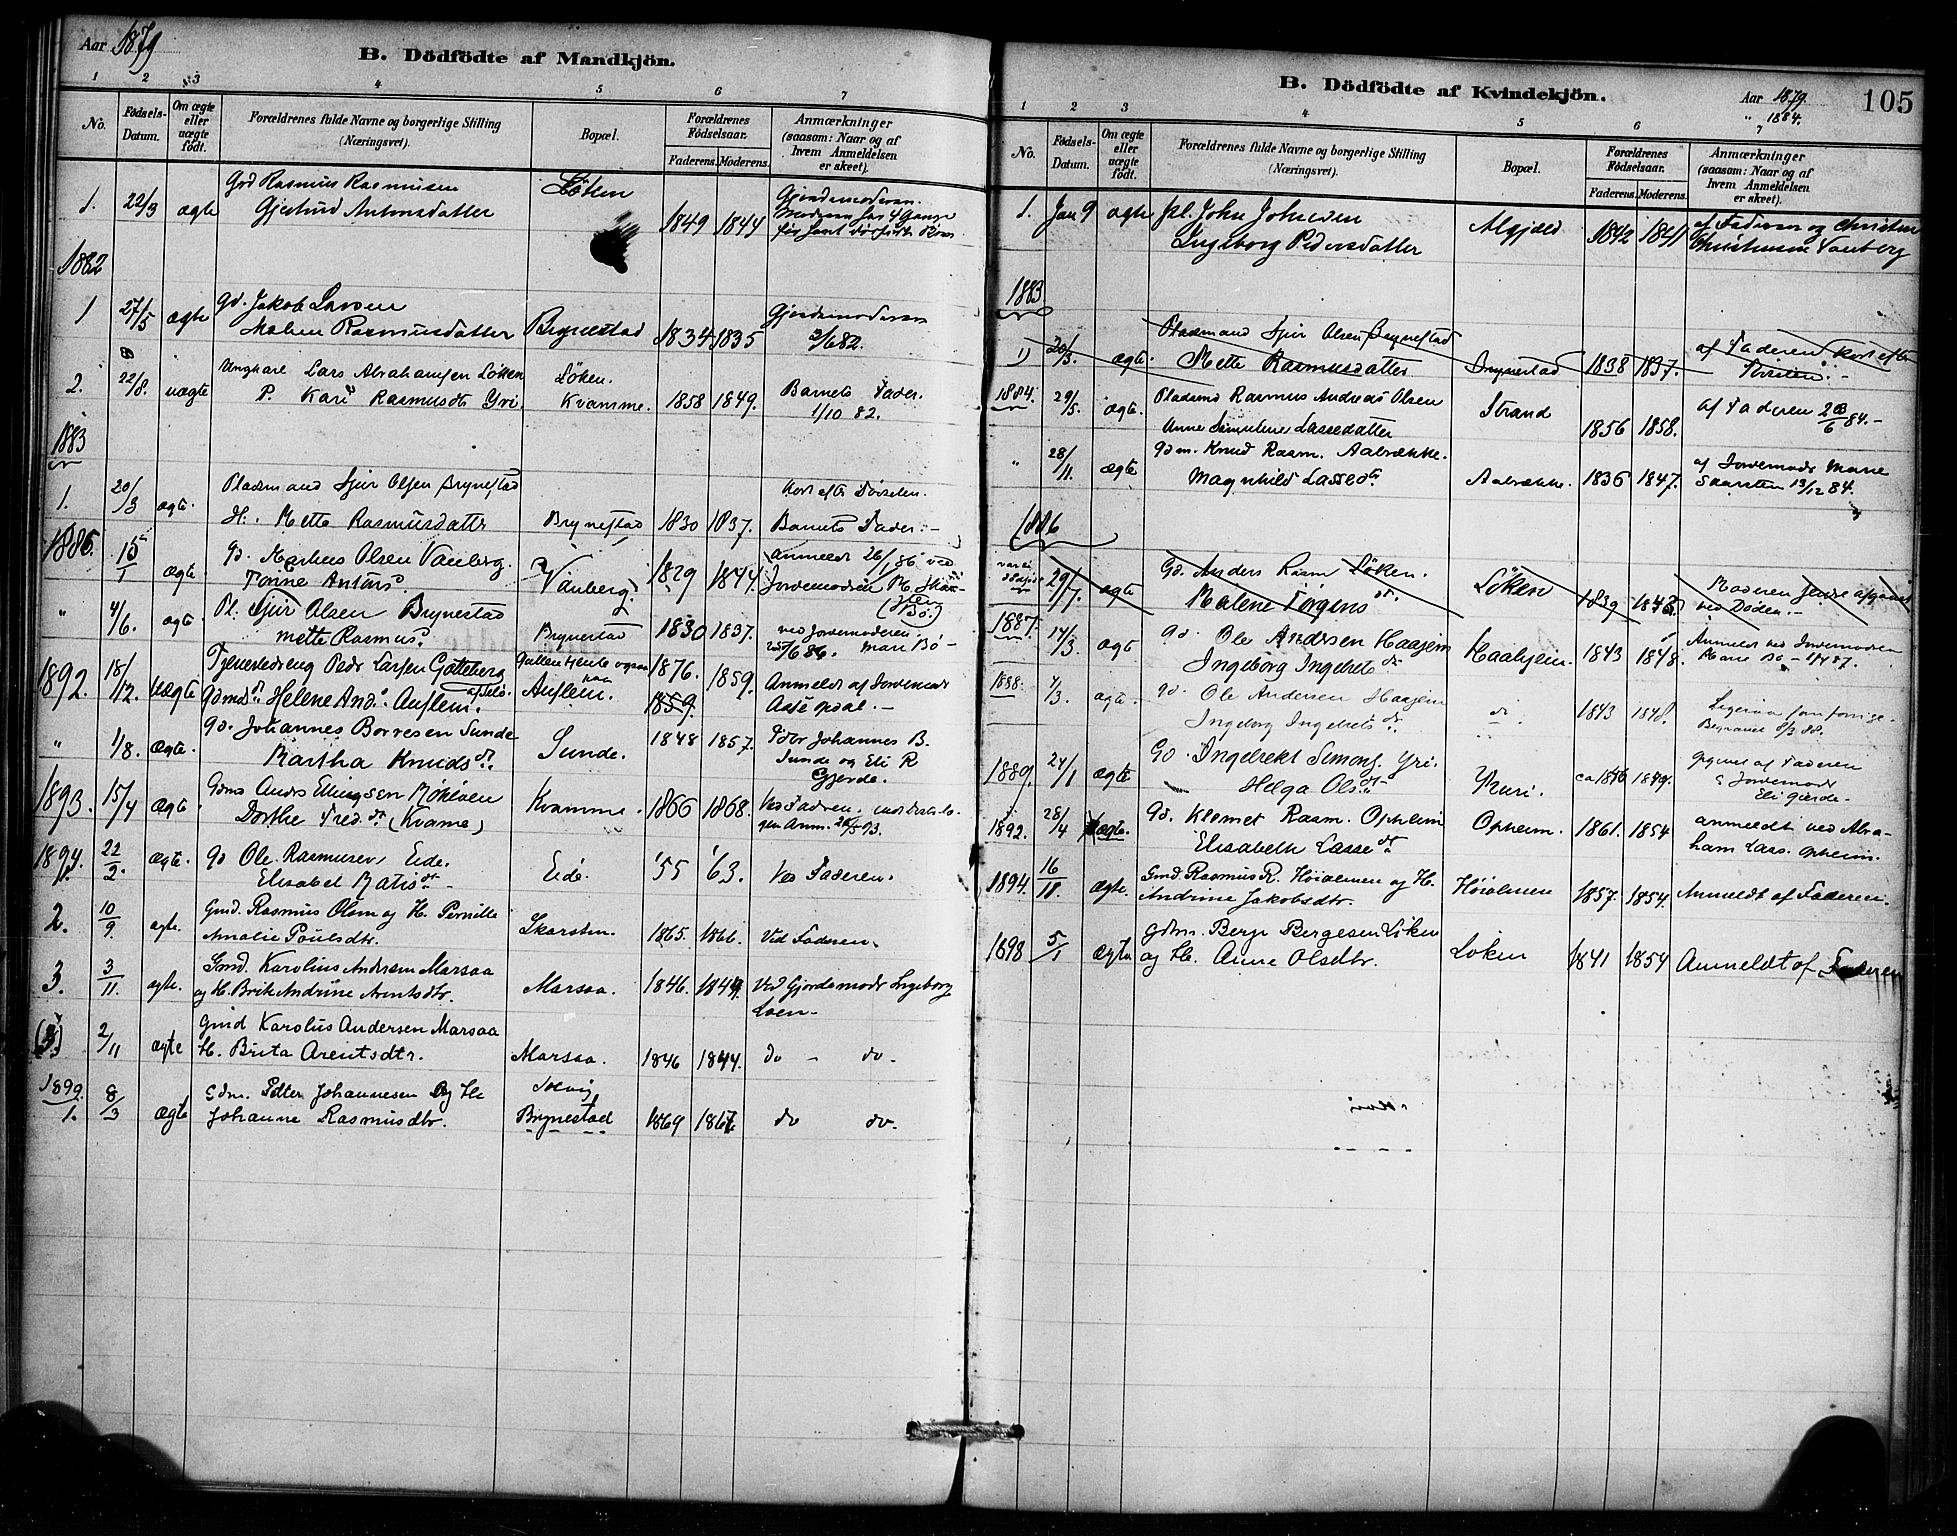 Aar 1879
B. Dödfödte af Mandkjön.
1 2 3 4 5 6 7
No. Födsels-Datum. Om ægte eller uægte födt. Forældrenes fulde Navne og borgerlige Stilling (Næringsvei). Bopæl. Forældrenes Födselsaar. Faderens. Moderens. Anmærkninger (saasom: Naar og af hvem Anmeldelsen er skeet).
1. 22/3 ægte Grd Rasmus Rasmusen Løken
Gjertrud Antonsdatter 1849 1844 Gjordemoderen.
Moderen har 4 Gange
1882
1 27/5 ægte Gd. Jakob Larsen
Malene Rasmusdatter Brynestad 1834 1835 Gjordemoderen
3/6 82.
2. 22/8. uægte Ungkarl Lars Abrahamsen Løken Løken.
P. Kari Rasmusdt Yri. Kvamme. 1858 1849. Barnets Fader.
1/10 82.
1883
1. 20/3 ægte. Pladsmand Sjur Olsen Brynestad Kort efter Fødselen.
H. Mette Rasmusdattr Brynestad 1830 1837. Barnets Fader.-
1886. 15/1 ægte. Gd. Markus Olsen Vanberg.
Tonne Antons d. Vanberg. 1829 1844. Anmeldt 26/1 86 ved
Jordemoderen M.
" 4/6. ægte Pl. Sjur Olsen Brynestad (Bø.)
Mette Rasmus d. Brynestad 1830 1837. ved Jordemoderen
Mari Bø -
1892. 18/12. Uægte Tjenestedreng Pedr Larsen Gotteberg
Gdmds dt. Helene And. Auflem. Auflem. 1876. 1859. 1859. Anmeldt af Jordemodr
Aase Opdal. -
" 1/8. Ægte. Gd. Johannes Borresen Sunde
Martha Knuds dt. Sunde. 1848 1857. Fdr Johannes B.
Sunde og Eli R
Gjerde.
1893. 15/4 Ægte Gdmd Anders Ellingsen Møkleven
Dorthe Fred. dt (Kvame) Kvamme. 1866 1868. Ved Faderen.
1894. 22/2. ægte. Gd Ole Rasmusen Eide.
Elisabet Matis dt - Eide. '55 '63. Ved Faderen.
2. 10/9 ægte. Gmd. Rasmus Olsen og H. Pernille
Amalie Poulsdtr. Skarsten. 1865. 1866. Ved Faderen.
3. 3/11. ægte. Gmd. Karolius Andersen Marsaa
og H. Brit Andrine Arentsdtr. Marsaa. 1846. 1844. Ved Gjordemodr Ingeborg
Loen-
(3) 2/11 ægte Gmd Karolus Andersen Marsaa
H. Brita Arentsdtr. Marsaa. 1846 1844. do - do.
1899.
1. 8/3 ægte Gdm. Petter Johannesen og H.
Johanne Rasmusdtr. Solvig
Brynestad 1869 1867 do do.
B. Dödfödte af Kvindekjön.
Aar 1879.
" 1884.
105
1 2 3 4 5 6 7
No. Födsels-Datum. Om ægte eller uægte födt. Forældrenes fulde Navne og borgerlige Stilling (Næringsvei). Bopæl. Forældrenes Födselsaar. Faderens. Moderens. Anmærkninger (saasom: Naar og af hvem Anmeldelsen er skeet).
1. Jan 9 ægte pl. John Johnsen
Ingeborg Pedersdatter Algjeld 1842 1841 af Faderen og Christen
Christensen Vanberg
1883
1) 20/3. ægte. Pladsmand Sjur Olsen Brynestad
Mette Rasmusdatter Brynestad 1838 1837. af Faderen kort efter
Fødselen. -
1884. 29/5. ægte. Pladsmd Rasmus Andreas Olsen
Anne Lassedatter Strand 1856 1858. af Faderen 28/6 84.-
" 28/11. ægte Gdm. Knud Rasm. Aabrække.
Magnhild Lasse dt. Aabrække. 1836 1847. af Jordemodr Marie
Skarsten 13/12 84.
1886
29/7. ægte Gd. Anders Rasm Løken.
Malene Jørgens dt. Løken 1839
1887. 14/3. ægte Gd. Ole Andersen Haahjem
Ingeborg Ingebrets dt. Haahjem. 1843 1848. Anmeldt ved Jordemoderen
Marie Bø - 1/4 87.
1888. 4/3. ægte. Gd. Ole Andersen Haahjem
Ingeborg Ingebrets dt. do. 1843 1848. Ligesaa som forrige.
Begravet 8/3 88.
1889. 24/1 ægte Gd. Ingebrekt Simons. Yri.
Helga Ols dt. Yri. ca 1846 1849. Opgivet af Faderen
& Jordemodr
Eli Gjerde.
1892. 28/4 ægte. Gd. Klemet Rasm. Opheim
Elisabeth Lasse dt. Opheim. 1861. 1854 anmeldt ved Abra-
ham Lass. Opheim.
1894. 16/18. Ægte. Gmd. Rasmus R. Høialmen og H.
Andrine Jakobsdtr. Høialmen 1857. 1854. Anmeldt af Faderen.
1898 5/1 ægte Gdm. Berge Bergesen Løken
og H. Anne Olsdtr. Løken 1841 1854 Anmeldt af Faderen